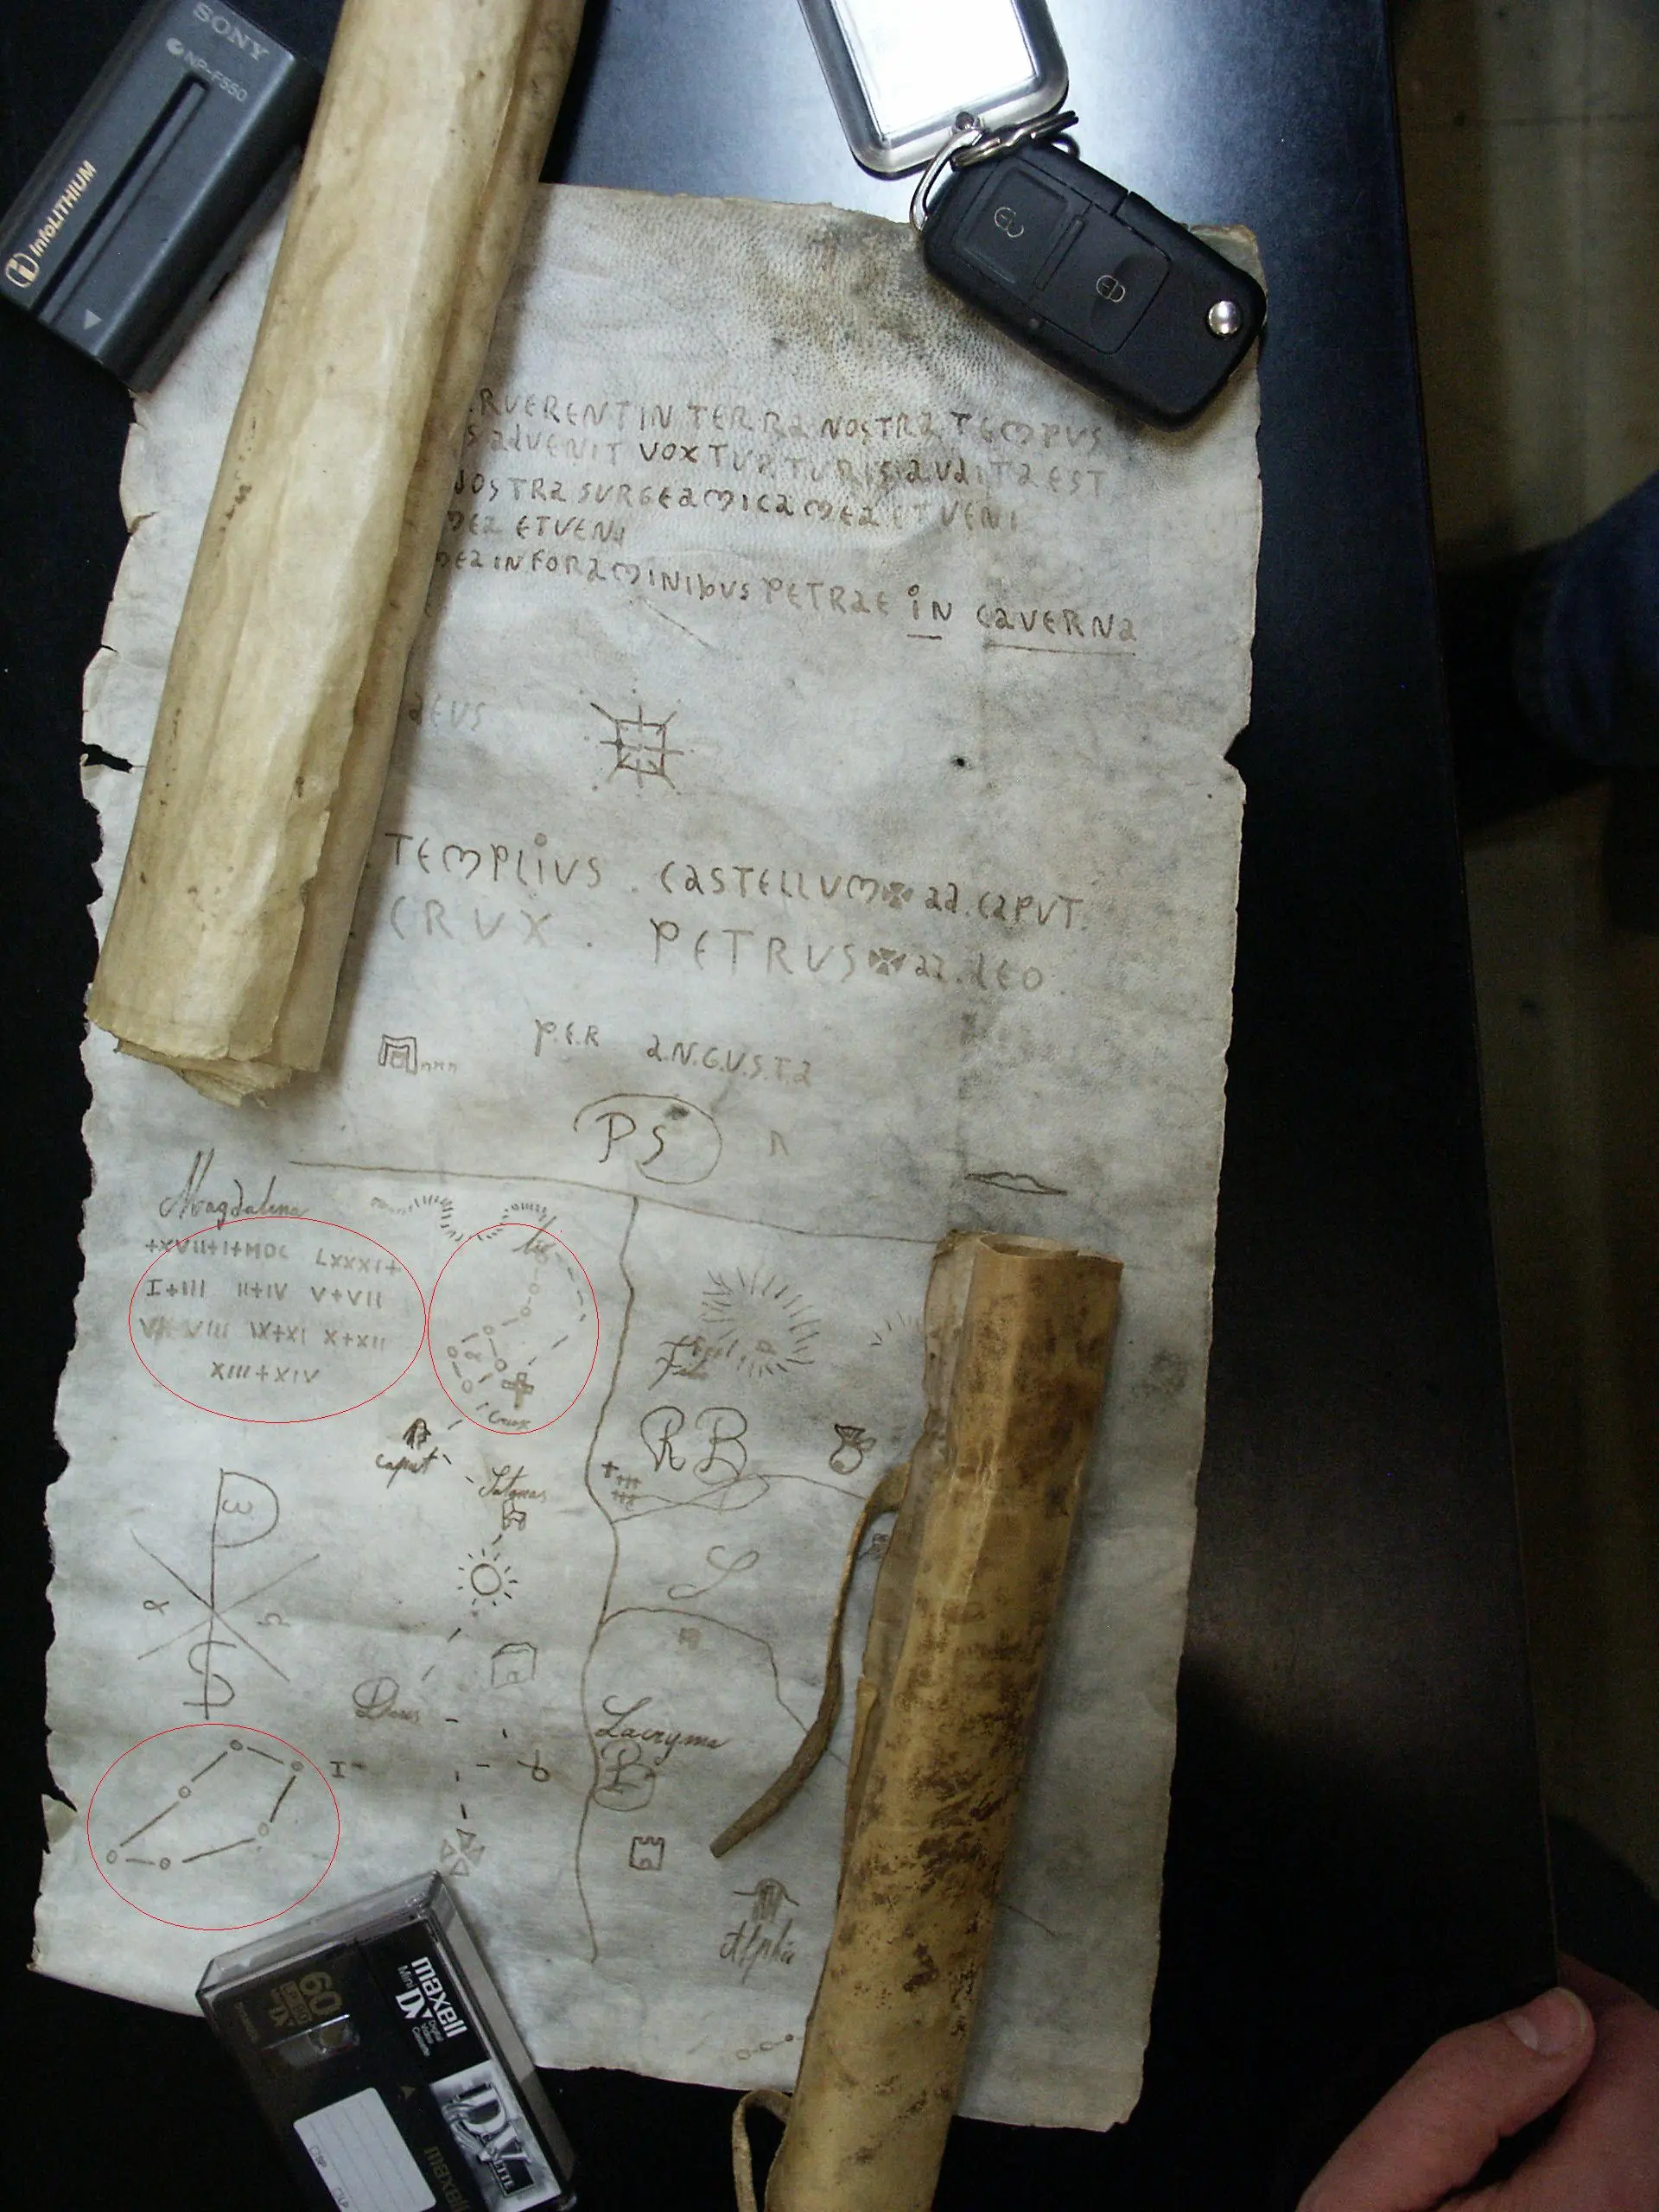 SONY
NP-F550
InfoLITHIUM
RVERENT IN TERRA NOSTRA TEMPVS
S ADVENIT VOX TVRTVRIS AVDITA EST
NOSTRA SURGE AMICA MEA ET VENI
MEA ET VENI
MEA IN FORAMINIBVS PETRAE IN CAVERNA
DEUS
TEMPLIVS . CASTELLVM ✠ AD . CAPVT .
CRVX . PETRVS ✠ AD . LEO .
P.E.R A.N.G.V.S.T.A
PS
Magdalena
+XVII+I+MDC LXXXI+
I+III II+IV V+VII
VIII IX+XI X+XII
XIII+XIV
Crux
caput
RB
Satanas
S
Lacryma
B
Alpha
maxell
Mini DV
60
maxell